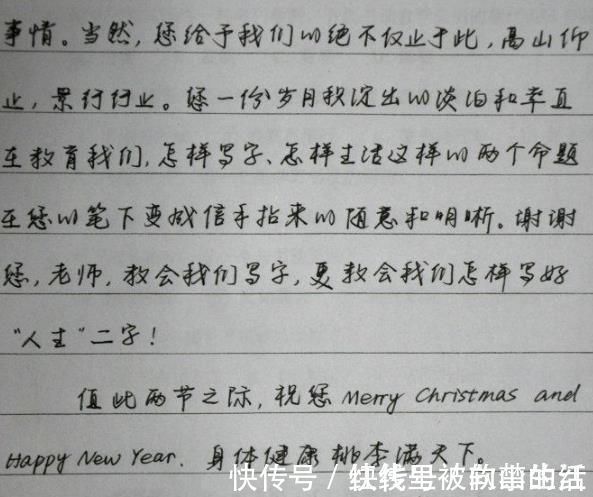 事情。当然，您给予我们的绝不仅止于此，高山仰
止，景行行止。您一份岁月积淀出的淡泊和率直
在教育我们，怎样写字、怎样生活这样的两个命题
在您的笔下变成信手拈来的随意和明晰。谢谢
您，老师，教会我们写字，更教会我们怎样写好
“人生”二字！
值此两节之际，祝您 Merry Christmas and
Happy New Year. 身体健康 桃李满天下。
快传号 /